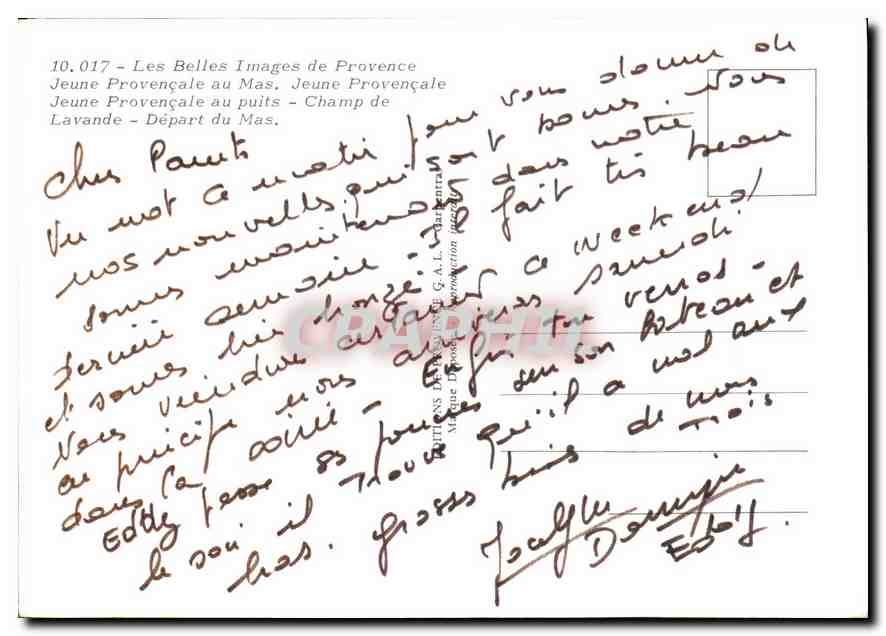 10.017 - Les Belles Images de Provence
Jeune Provençale au Mas. Jeune Provençale
Jeune Provençale au puits - Champ de
Lavande - Départ du Mas.
EDITIONS DE PROVENCE G.A.L. - Carpentras
Marque Déposée - Reproduction interdite
Chers Parents
Un mot ce matin pour vous donner de
nos nouvelles qui sont bonnes. Nous
sommes maintenant dans notre
dernière semaine - Il fait très beau
et sommes bien bronzé.
Nous viendrons certainement ce weekend
en principe nous arriverons samedi
dans la soirée - Enfin on verra -
Eddy passe ses journées sur son bateau et
le soir il trouve qu'il a mal aux
bras. Grosses bises de nous trois
Jocelyne
Dominique
Eddy.
CPAPHIL